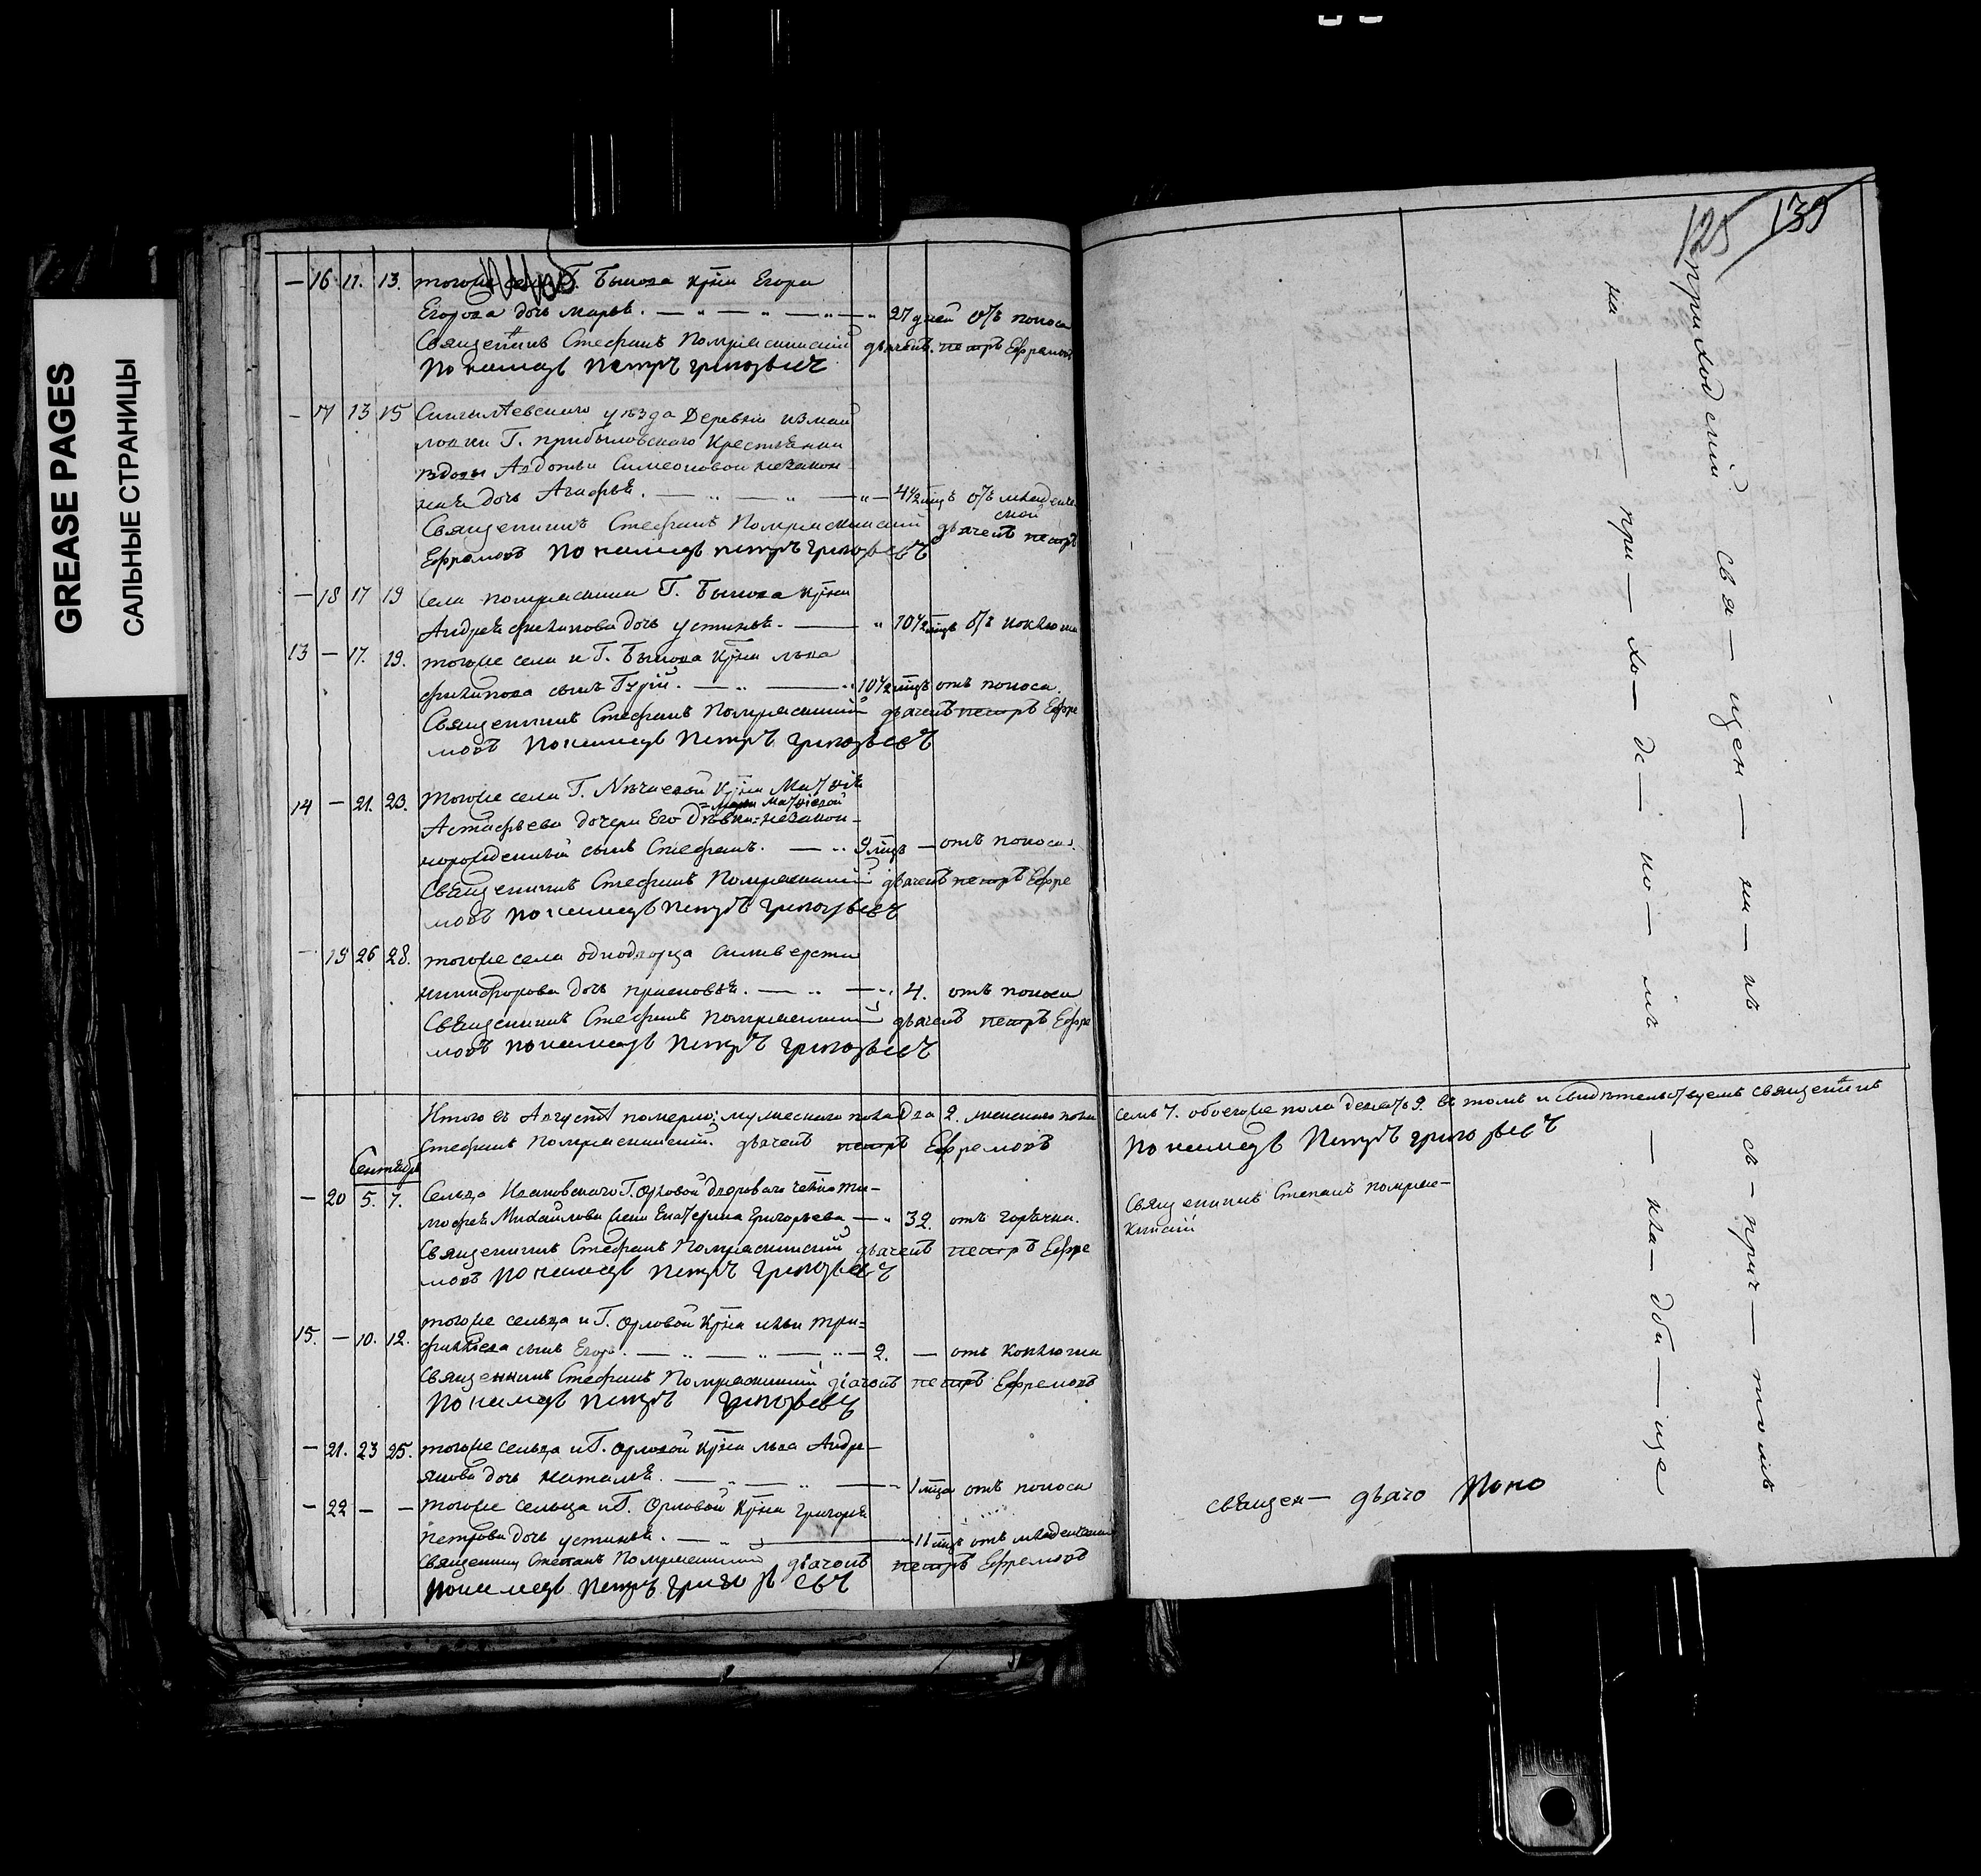 GREASE PAGES
САЛЬНЫЕ СТРАНИЦЫ
125 139
— 16 11. 13. тогоже села Г. Быкова Крна Егора
Егорова дочь Марья. 27 дней отъ поноса
Священникъ Стефанъ Помряскинскій дьячекъ Петръ Ефремовъ
Пономарь Петръ Григорьевъ
— 17 13 15 уѣзда Деревни Измай
ловки Г. Прибыловскаго Крестьянки
вдовы Авдотьи Симеоновой незакон
ная дочь Агафья. 4 1/2 мцъ отъ младенче
ской
Священникъ Стефанъ Помряскинскій дьячекъ Петръ
Ефремовъ Пономарь Петръ Григорьевъ
— 18 17 19 Села Помряскина Г. Быкова Крна
Андрея Филипова дочь Устинья. 10 1/2 мцъ отъ коклюша
13 — 17. 19. тогоже села и Г. Быкова Крна Льва
Филипова сынъ Гурій. 10 1/2 мцъ отъ поноса.
Священникъ Стефанъ Помряскинскій дьячекъ Петръ Ефре
мовъ Пономарь Петръ Григорьевъ
14 — 21. 23. Тогоже села Г. Крна Матѳія
Астафьева дочери Его Дѣвки Матѳіевой незакон-
норожденный сынъ Стефанъ. 9 мцъ — отъ поноса.
Священникъ Стефанъ Помряскинскій дьячекъ Петръ Ефре
мовъ Пономарь Петръ Григорьевъ
— 19 26 28. тогоже села однодворца Силиверста
Никифорова дочь Прасковья. 4. отъ поноса
Священникъ Стефанъ Помряскинскій дьячекъ Петръ Ефре
мовъ Пономарь Петръ Григорьевъ
Итого въ Августѣ померло; мужескаго пола Два 2. женскаго пола семь 7. обоегоже пола девять 9. въ томъ и свидѣтельствуемъ Священникъ
Стефанъ Помряскинскій. дьячекъ Петръ Ефремовъ Пономарь Петръ Григорьевъ
Сентябрь
— 20 5. 7. Сельца Ивановскаго Г. Орловой Двороваго челка Ти-
мофея Михайлова жена Екатерина Григорьева — 32. отъ горячки.
Священникъ Стефанъ Помряскинскій дьячекъ Петръ Ефре
мовъ Пономарь Петръ Григорьевъ
Священникъ Стефанъ Помряс-
кинскій
15. — 10. 12. тогоже сельца и Г. Орловой Крна Ильи Три-
филиева сынъ Егоръ. 2. — отъ коклюша
Священникъ Стефанъ Помряскинскій дьячокъ Петръ Ефремовъ
Пономарь Петръ Григорьевъ
— 21. 23 25. тогоже сельца и Г. Орловой Крна Льва Андре-
янова дочь Наталья. 1 мца отъ поноса
— 22 — — тогоже сельца и Г. Орловой Крна Григорья
Петрова дочь Устинья. 11 мцъ отъ младенческой
Священникъ Стефанъ Помряскинскій дьячокъ Петръ Ефремовъ
Пономарь Петръ Григорьевъ
приходскій свя — щен — ни — къ съ — прич — томъ
на — при — хо — дс — ко — мъ — кла — дби — ще
священ — дьячо Поно